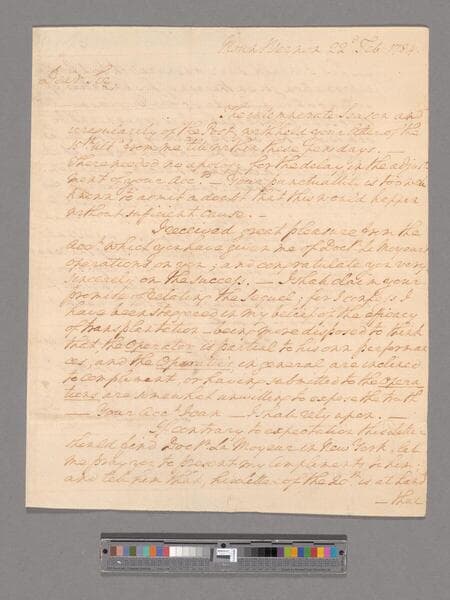 Mount Vernon 22d Feb. 1784.
Dear Sir,
The intemperate Season and
irregularity of the Post, withheld your letter of the
15th Ulto from me till within these few days. —
There needed no apology for the delay in the adjust
ment of your Acct. — Your punctuality is too well
known to admit a doubt that this would happen
without sufficient cause. —
I received great pleasure from the
acct which you have given me of Doctr Le Moyeurs
operations on you; and congratulate you very
sincerely on the success. — I shall claim your
promise of relating the Sequel; for I confess I
have been staggered in my belief of the efficacy
of transplantation — being more disposed to think
that the Operator is partial to his own performan
ces, and the Operatees in general are inclined
to compliment, or having submitted to the Opera
tions are somewhat unwilling to expose the truth
— Your Acct I can — I shall rely upon. —
If contrary to expectation this letter
should find Doctr Le Moyeur in New York, let
me pray you to present my compliments to him;
and tell him that, his letter of the 20th is at hand
— that